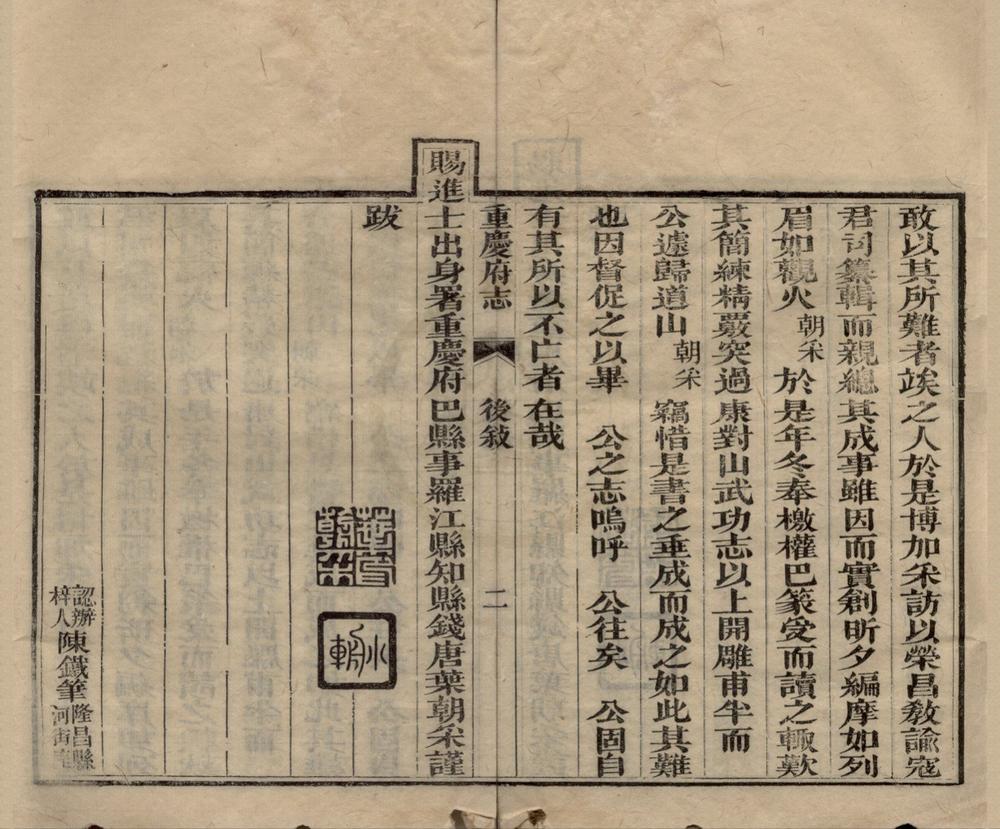 敢以其所難者竢之人於是博加采訪以榮昌敎諭寇
君司纂輯而親總其成事雖因而實創昕夕編摩如列
眉如觀火朝采於是年冬奉檄權巴篆受而讀之輒歎
其簡練精覈突過康對山武功志以上開雕甫半而
公遽歸道山朝采竊惜是書之垂成而成之如此其難
也因督促之以畢 公之志嗚呼 公往矣 公固自
有其所以不亡者在哉
重慶府志 後敘 二
賜進士出身署重慶府巴縣事羅江縣知縣錢唐葉朝采謹
跋
葉印朝采
冰軒
認辦梓人陳鐵筆隆昌縣河街